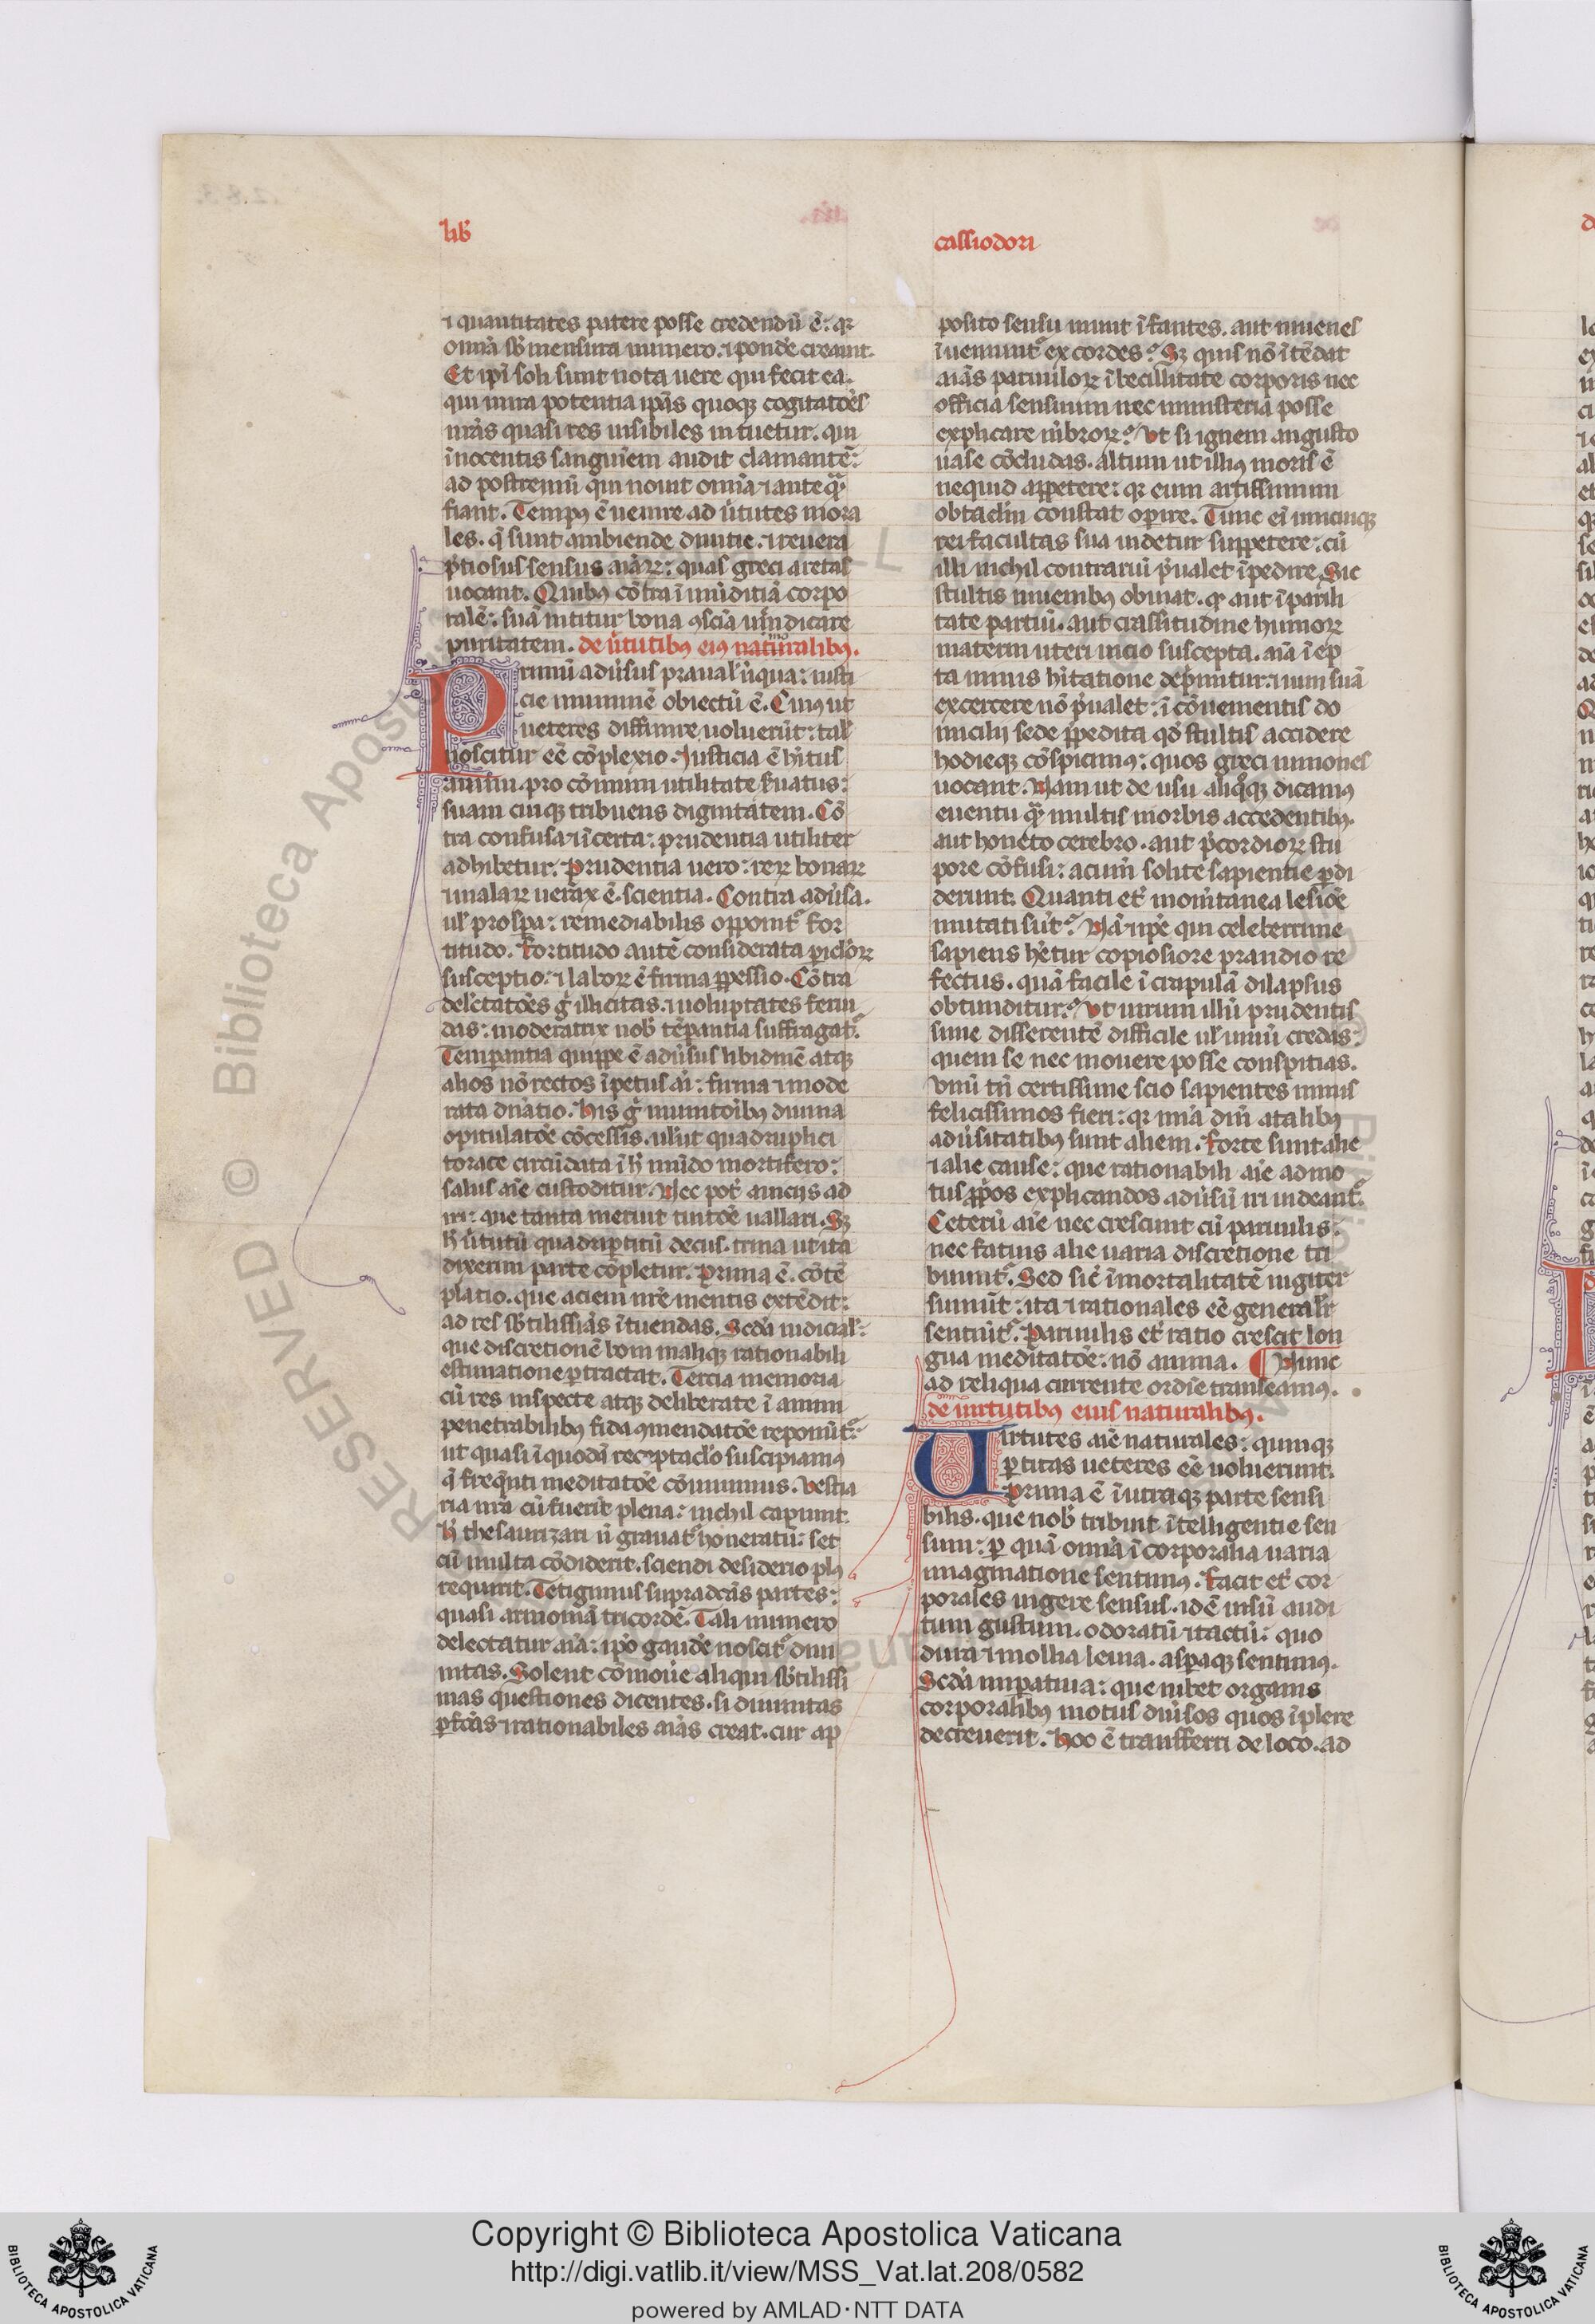 lib̄
cassiodori
⁊ quantitates patere posse credendū ē: qꝛ
om̄ia sb̄ mensura numero. ⁊ pondē creauit.
Et ip̄i soli sunt nota uere qui fecit ea.
qui mira potentia ip̄as quoqꝫ cogitatōes
nr̄as quasi res uisibiles intuetur. qui
īnocentis sanguinem audit clamantē:
ad postremū qui nouit om̄ia ⁊ ante qͣ
fiant. Tempꝰ ē uenire ad ūtutes mora
les. q̄ sunt ambiende diuitie. ⁊ reuera
p̄tiosus sensus aīaꝝ: quas greci aretas
uocant. Quibꝰ cōtra īmūditiā corpo
ralē: suā nititur bona ꝯscīa uīndicare
puritatem. de ūtutibꝰ eiꝰ naturalibꝰ.
Primū adūsus praua ⁊ iniqua: iusti
cie munimē obiectū ē. Cuiꝰ ut
ueteres diffinire uoluerūt: tal̄
noscitur eē cōplexio. Iusticia ē hītus
animi. pro cōmuni utilitate ẜuatus:
suam cuiqꝫ tribuens dignitatem. Cō
tra confusa ⁊ īcerta: prudentia utiliter
adhibetur. Prudentia uero: reꝝ bonaꝝ
⁊ malaꝝ uerax ē scientia. Contra adūsa.
ul̄ prospa: remediabilis opponit᷑ for
titudo. Fortitudo autē considerata piclōꝝ
susceptio: ⁊ laboꝝ ē firma ꝑpessio. Cōtra
delc̄tatōes g̊ illicitas. ⁊ uoluptates ferui
das: moderatrix nob̄ tēpantia suffragat᷑.
Tempantia quippe ē adūsus libidinē atqꝫ
alios nō rectos īpetus aī: firma ⁊ mode
rata dn̄atio. His g̊ munitōibꝰ diuina
opitulatōe cōcessis. uł ut quadruplici
torace circūdata ī h̄ mūdo mortifero:
salus aīe custoditur. Nec pōt aliucijs ad
iri: que tanta meruit tuitōe uallari. Sꝫ
h̄ ūtutū quadripꝑtitū decus. trina ut ita
dixerim parte cōpletur. Prima ē. cōtē
platio. que aciem nr̄e mentis extēdit:
ad res sb̄tilissīas ītuendas. Scd̄a iudicial̄:
que discretionē boni maliqꝫ rationabili
estimatione ꝑtractat. Tercia memoria
cū res inspecte atqꝫ deliberate ī animi
penetrabilibꝰ fida ꝯmendatōe reponūt᷑:
ut quasi ī quodā receptaclō suscipiamꝰ
q̄ freq̄nti meditatōe cōmimus. Vestia
ria nr̄a cū fuerit plena: nichil capiunt.
h̄ thesaurizari n̄ grauat᷑ honeratū: set
cū multa cōdiderit. sciendi desiderio plꝰ
requirit. Tetigimus supradcās partes:
quasi armoniā tricordē. Tali numero
delectatur aīa: ip̄o gaudē noscit᷑ diui
nitas. Solent cōmouē aliqui sb̄tilissi
mas questiones dicentes. si diuinitas
ꝑfc̄as ⁊ rationabiles aīas creat. cur ap
posito sensu uiuit īfantes. aut iuuenes
īueniunt᷑ excordes? Sꝫ quis nō ītēdat
aīas paruuloꝝ ībecillitate corporis nec
officia sensuum nec ministeria posse
explicare mēbroꝝ? Vt si ignem angusto
uase cōcludas. altum ut illiꝰ moris ē
nequid appetere: qꝛ eum artissimum
obtaclm̄ constat opire. Tunc eī unicuiqꝫ
rei facultas sua uidetur suppetere: cū
illi nichil contrarium p̄ualet īpedire. Sic
stultis iuuenibꝰ obuiat. qꝛ aut īparili
tate partiū. aut crassitudine humoꝝ
materni uteri uicio suscepta. aīa ī ep̄
ta nimis hītatione dep̄mitur. ⁊ uim suā
excercere nō p̄ualet: ī cōuenientis do
micilij sede p̄pedita qd̄ stultis accidere
hodieqꝫ cōspicimꝰ: quos greci mimones
uocant. Nam ut de usu aliqͦqꝫ dicamꝰ
euentu qͣ multis morbis accedentibꝰ.
aut honeto cerebro. aut p̄cordioꝝ stu
pore cōfusi: acumē solite sapientie ꝑdi
derunt. Quanti et̄ momtanea lesiōe
mutati sūt? Nā ⁊ ip̄e qui celeberrime
sapiens hētur copiosiore prandio re
fectus. quā facile ī crapulā dilapsus
obtunditur? Vt uirum illū prudentis
sime differentē difficile ul̄ unū credas:
quem se nec mouere posse conspicias.
Vnū tn̄ certissime scio sapientes nimis
felicissimos fieri: qꝛ mīa dn̄i a talibꝰ
adūsitatibꝰ sunt alieni. Forte sunt alie
⁊ alie cause: que rationabili aīe ad mo
tus ꝓprios explicandos adūsū iri uideant᷑.
Ceterū aīe nec crescunt cū paruulis:
nec fatuis alie uaria discretione tri
buunt᷑. Sed sic̄ īmortalitatē iugiter
sumūt: ita ⁊ rationales eē general̄r
sentiūt᷑. Paruulis et̄ ratio crescit lon
gua meditatōe: nō anima. ¶ Nunc
ad reliqua currente ordīe transeamꝰ.
de uirtutibꝰ eius naturalibꝰ.
Uirtutes aīe naturales: quinqꝫ
ꝑtitas ueteres eē uoluerunt.
Prima ē ī utraqꝫ parte sensi
bilis. que nob̄ tribuit ītelligentie sen
sum: ꝑ quā om̄ia īcorporalia uaria
imaginatione sentimꝰ. Facit et̄ cor
porales uigere sensus. id ē uisū audi
tum gustum. odoratū ⁊ tactū: quo
dura ⁊ mollia leuia. aspaqꝫ sentimꝰ.
Scd̄a impatiua: que iubet organis
corporalibꝰ motus diūsos quos īplere
decreuerit. Hoc ē transferri de loco. ad
Copyright © Biblioteca Apostolica Vaticana
http://digi.vatlib.it/view/MSS_Vat.lat.208/0582
powered by AMLAD·NTT DATA
BIBLIOTECA APOSTOLICA VATICANA
BIBLIOTECA APOSTOLICA VATICANA